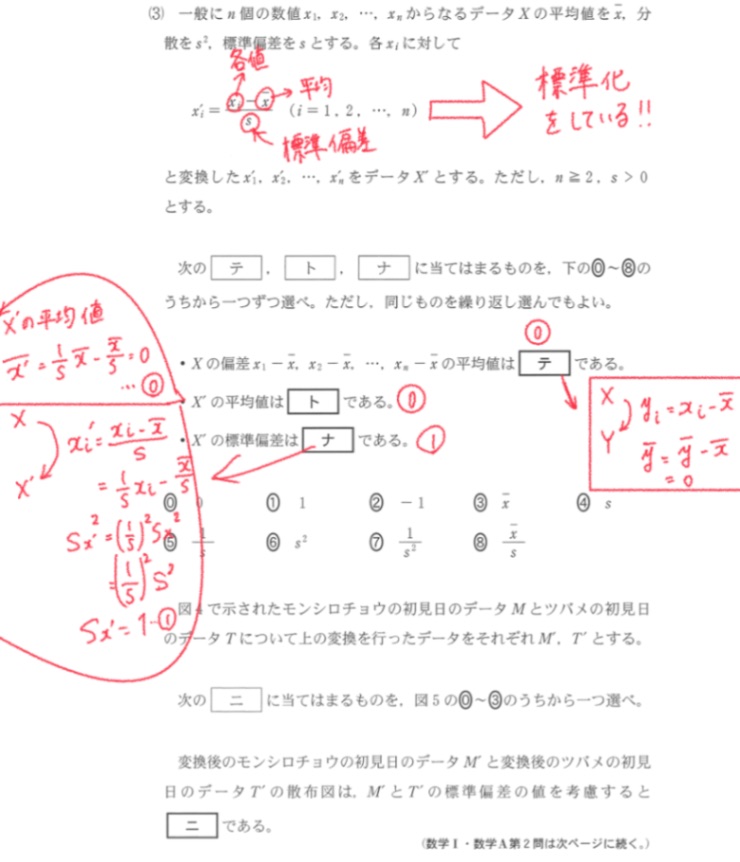 (3) 一般に n 個の数値 x₁, x₂, …, xₙ からなるデータ X の平均値を x̄, 分
散を s², 標準偏差を s とする。各 xᵢ に対して
各値
平均
x′ᵢ = (xᵢ − x̄)/s (i = 1, 2, …, n)
標準偏差
標準化
をしている!!
と変換した x′₁, x′₂, …, x′ₙ をデータ X′ とする。ただし, n ≧ 2, s > 0
とする。
次の テ , ト , ナ に当てはまるものを, 下の⓪~⑧の
うちから一つずつ選べ。ただし, 同じものを繰り返し選んでもよい。
⓪
・X の偏差 x₁ − x̄, x₂ − x̄, …, xₙ − x̄ の平均値は テ である。
・X′ の平均値は ト である。⓪
・X′ の標準偏差は ナ である。①
X′の平均値
x̄′ = 1/s x̄ − x̄/s = 0
…⓪
X
X′
xᵢ′ = (xᵢ − x̄)/s
= 1/s xᵢ − x̄/s
Sx′² = (1/s)² Sx²
= (1/s)² S²
Sx′ = 1 …①
X
Y
yᵢ = xᵢ − x̄
ȳ = ȳ − x̄
= 0
⓪ 0 ① 1 ② −1 ③ x̄ ④ s
⑤ 1/s ⑥ s² ⑦ 1/s² ⑧ x̄/s
図4で示されたモンシロチョウの初見日のデータ M とツバメの初見日
のデータ T について上の変換を行ったデータをそれぞれ M′, T′ とする。
次の ニ に当てはまるものを, 図5の⓪~③のうちから一つ選べ。
変換後のモンシロチョウの初見日のデータ M′ と変換後のツバメの初見
日のデータ T′ の散布図は, M′ と T′ の標準偏差の値を考慮すると
ニ である。
(数学Ⅰ・数学A第2問は次ページに続く。)